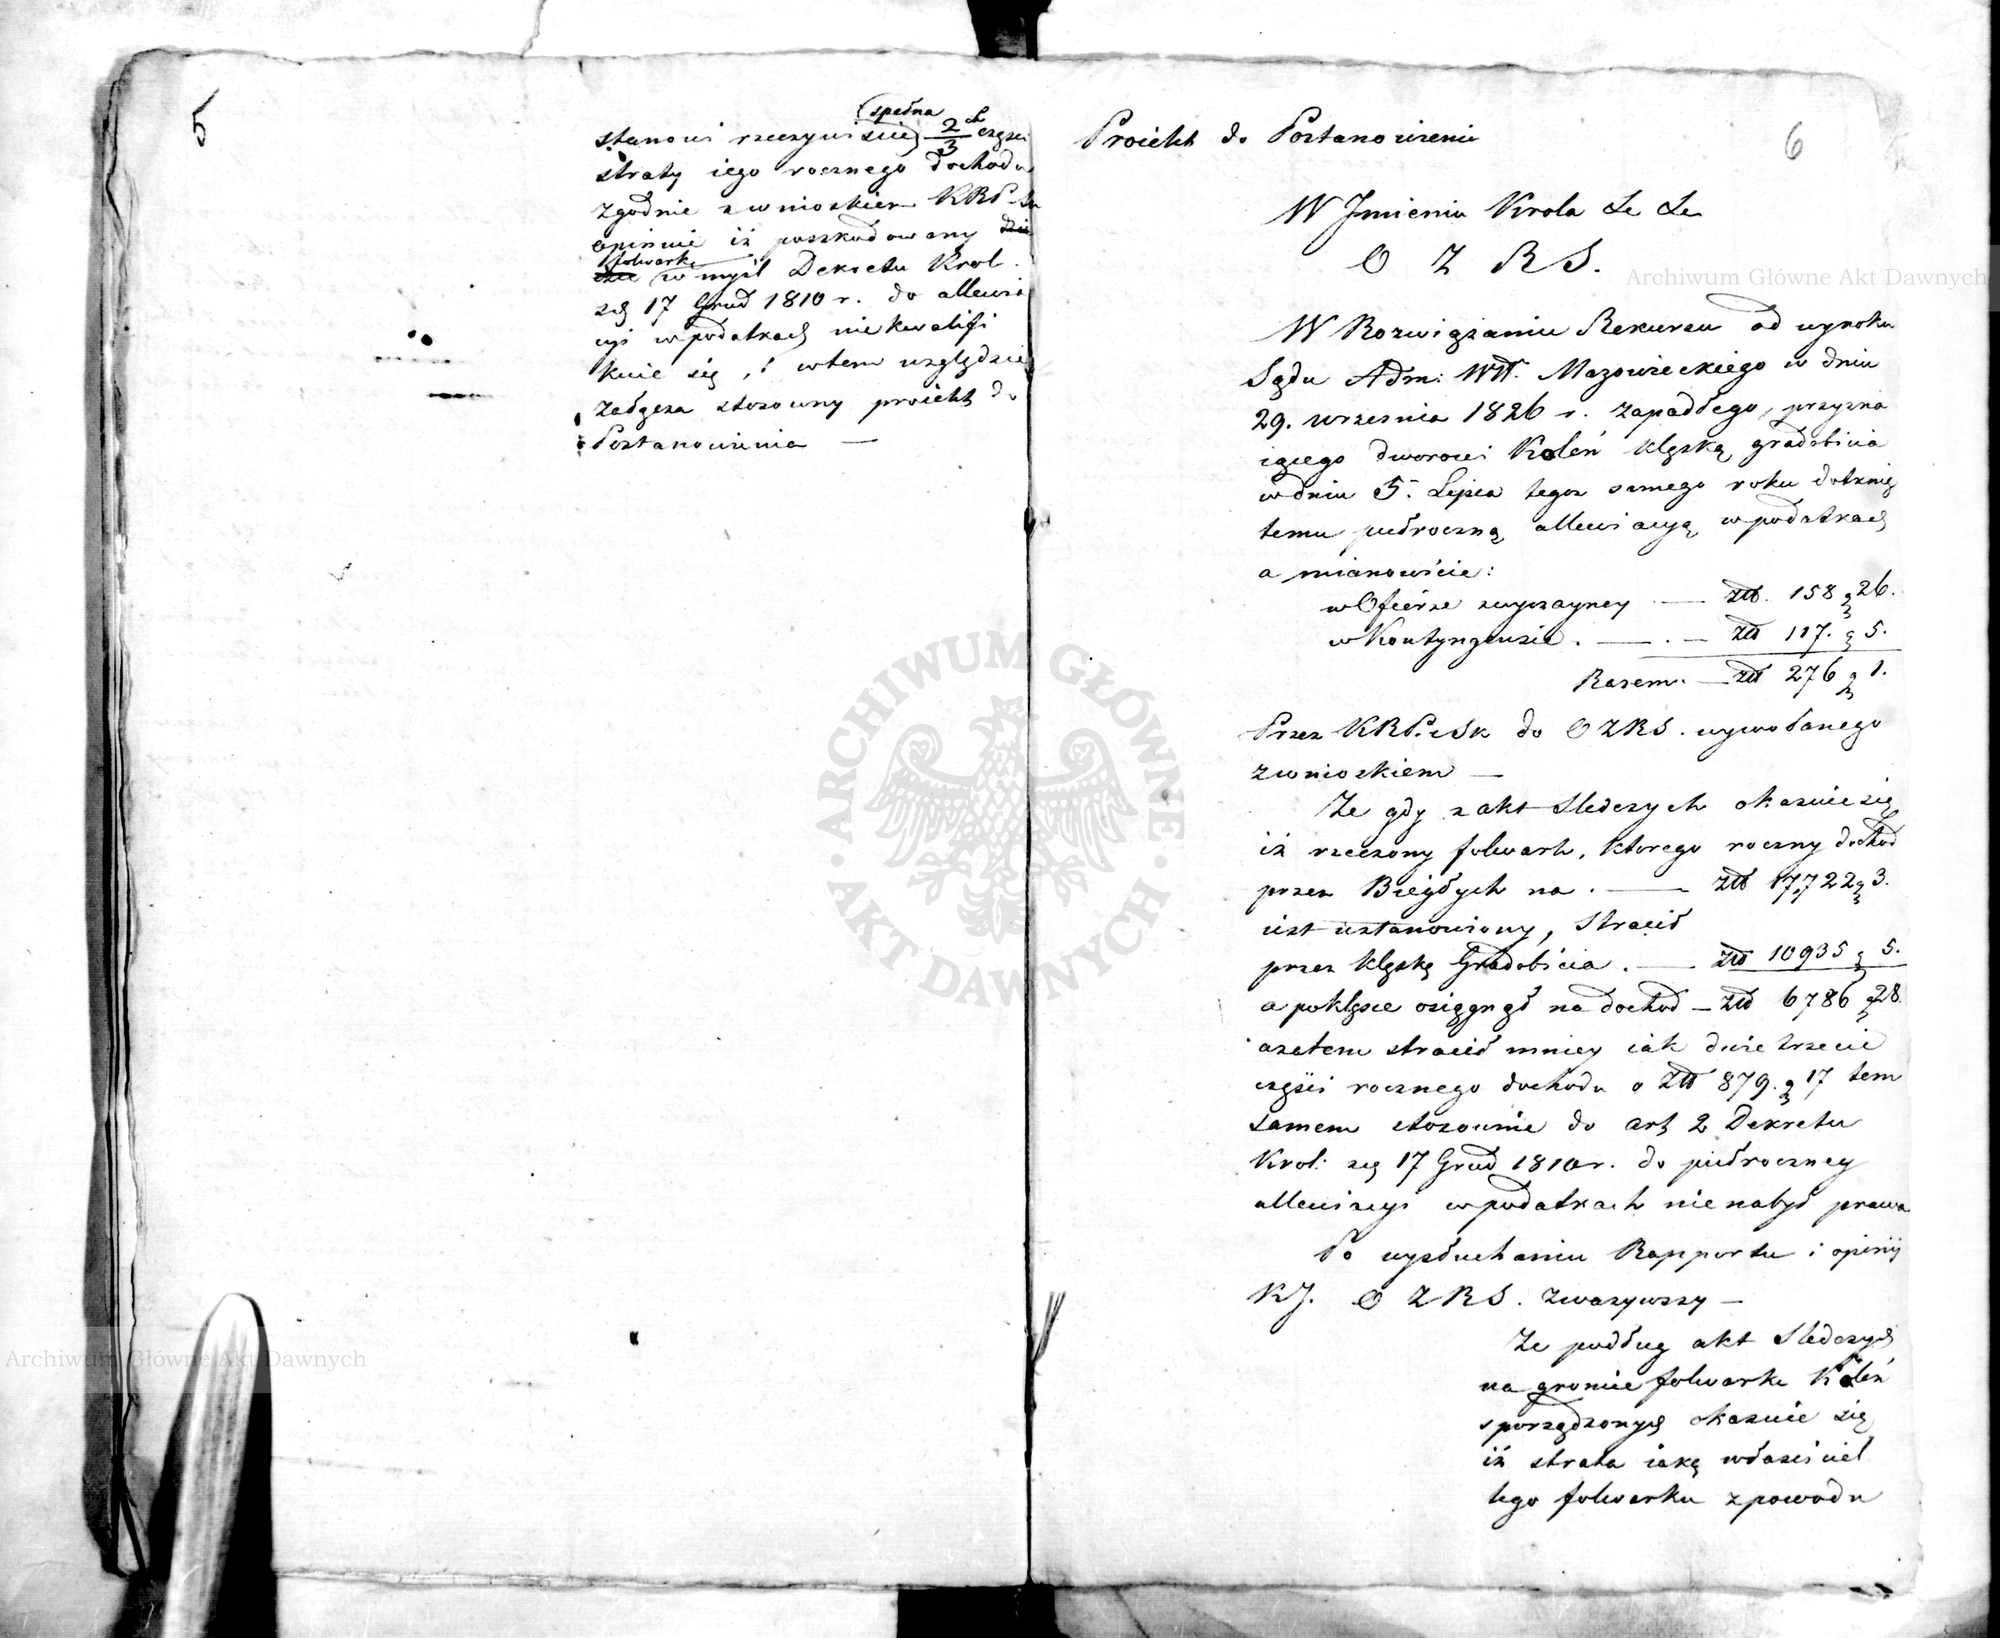 5
spełna
stanowi rzeczywiście 2/3 ch części
straty iego rocznego dochodu
zgodnie z wnioskiem KRP i Sk
opiniuie iż poszkodowany
folwark w myśl Dekretu Krol.
zej 17 Grud 1810 r. do allewia
cyi w podatkach nie kwalifi
kuie się, i w tem względzie
załącza stosowny proiekt do
Postanowienia —
6
Proiekt do Postanowienia
W Jmieniu Krola &c &c
O Z R S.
W Rozwiązaniu Rekursu od wyroku
Sądu Adm: Wtt. Mazowieckiego w dniu
29. września 1826 r. zapadłego, przyzna
iącego dworowi Koleń klęską gradobicia
w dniu 5. Lipca tegoż samego roku dotknię
temu półroczną allewiacyą w podatkach
a mianowicie:
w Ofierze zwyczayney — Złł. 158 g 26.
w Kontyngensie. — . — Złł 117. g 5.
Razem. — Złł 276 g 1.
Przez KRP. i Sk do OZRS. wywołanego
z wnioskiem —
Że gdy z akt Sledczych okazuie się
iż rzeczony folwark, ktorego roczny dochod
przez Biegłych na . — Złł 17,722 g 3.
iest ustanowiony, Stracił
przez klęskę Gradobicia . — Złł 10935 g 5.
a po klęsce osiągnął na dochod — Złł 6786 g 28.
a zatem stracił mniey iak dwie trzecie
części rocznego dochodu o Złł 879. g 17 tem
samem stosownie do art 2 Dekretu
Krol: zej 17 Grud 1810 r. do półroczney
allewiacyi w podatkach nie nabył prawa
Po wysłuchaniu Rapportu i opinij
KJ. O Z R S. zważywszy —
Że podług akt Sledczych
na gruncie folwarku Koleń
sporządzonych okazuie się
iż strata iaką właściciel
tego folwarku z powodu
Archiwum Główne Akt Dawnych
ARCHIWUM GŁÓWNE AKT DAWNYCH
Archiwum Główne Akt Dawnych